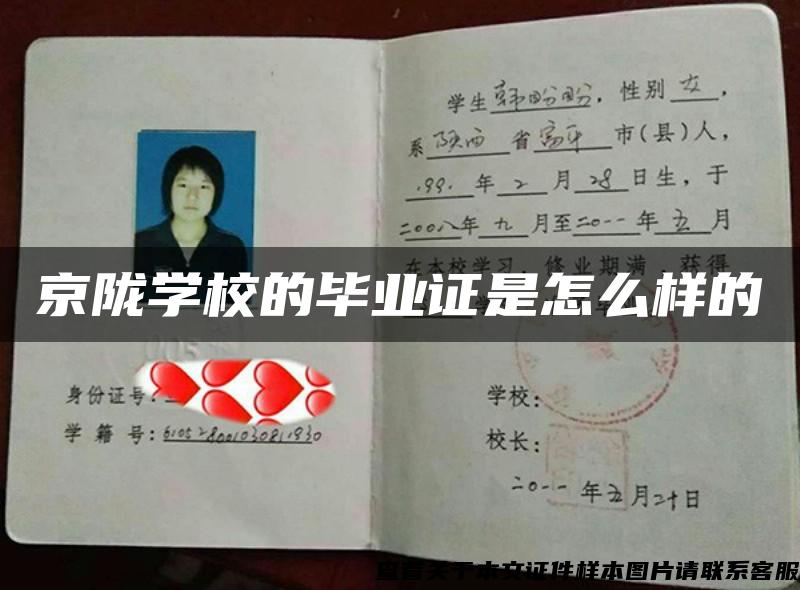 学生韩盼盼，性别女，
系陕西省富平市(县)人，
1991年2月28日生，于
二00八年九月至二0一一年五月
在本校学习，修业期满，获得
京陇学校的毕业证是怎么样的
身份证号：
学籍号：610528001030811930
学校：
校长：
二0一一年五月二十日
查看关于本文证件样本图片请联系客服